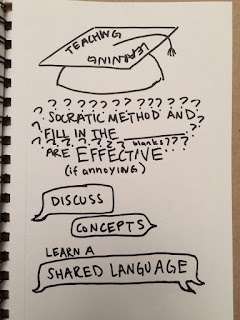 TEACHING
LEARNING
? ? ? ? ? ? ? ? ? ? ? ?
? SOCRATIC METHOD AND ?
? FILL IN THE ________ ?
? ? ? ? ? ? ? blanks???
ARE EFFECTIVE
(if annoying)
DISCUSS
CONCEPTS
LEARN A
SHARED LANGUAGE